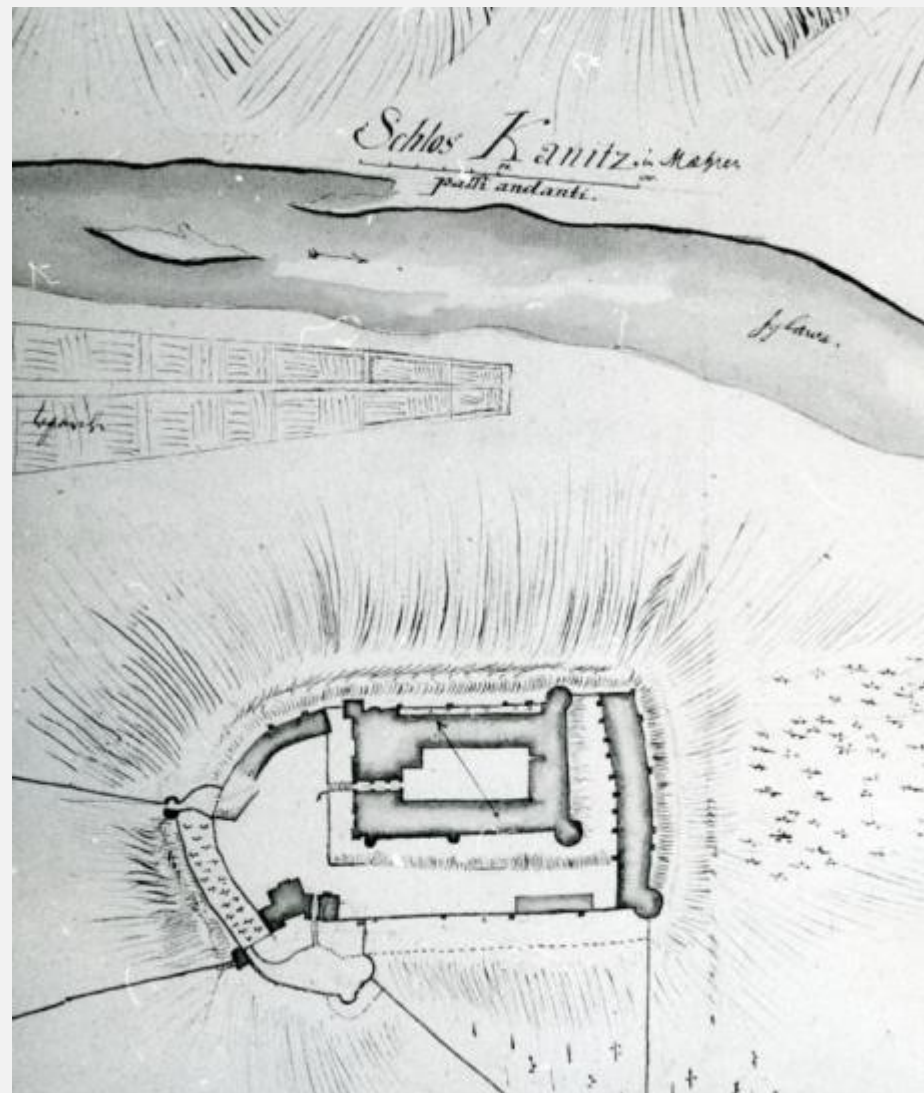 Schlos Kanitz in Mahren
passi andanti.
Jglawa.